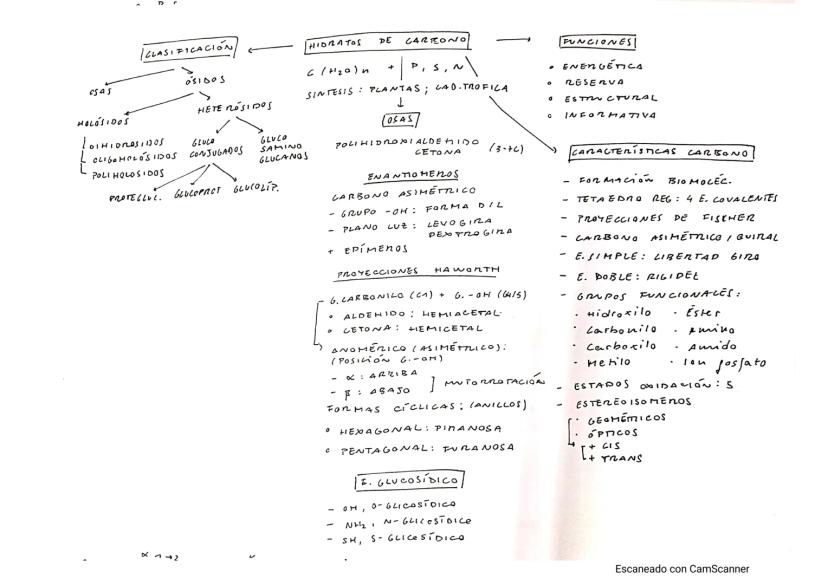 HIDRATOS DE CARBONO
C(H2O)n + P, S, N
SINTESIS: PLANTAS; CAD. TROFICA
CLASIFICACIÓN
OSAS
ÓSIDOS
HOLÓSIDOS
HETERÓSIDOS
DIHOLOSIDOS
OLIGOHOLÓSIDOS
POLIHOLOSIDOS
GLUCO
CONJUGADOS
GLUCO
SAMINO
GLUCANOS
PROTEGLUC.
GLUCOPROT
GLUCOLÍP.
OSAS
POLIHIDROXIALDEHIDO
CETONA (3-7C)
ENANTIOMEROS
CARBONO ASIMÉTRICO
- GRUPO -OH: FORMA D/L
- PLANO LUZ: LEVOGIRA
DEXTROGIRA
+ EPÍMEROS
PROYECCIONES HAWORTH
G. CARBONILO (C1) + G. -OH (C4/5)
° ALDEHIDO: HEMIACETAL
° CETONA: HEMICETAL
ANOMÉRICO (ASIMÉTRICO):
(POSICIÓN G. -OH)
- α: ARRIBA
- β: ABAJO ] MUTORROTACIÓN
FORMAS CÍCLICAS: (ANILLOS)
° HEXAGONAL: PIRANOSA
° PENTAGONAL: FURANOSA
E. GLUCOSÍDICO
- OH, O-GLICOSÍDICO
- NH2, N-GLICOSÍDICO
- SH, S-GLICOSÍDICO
FUNCIONES
° ENERGÉTICA
° RESERVA
° ESTRUCTURAL
° INFORMATIVA
CARACTERÍSTICAS CARBONO
- FORMACIÓN BIOMOLÉC.
- TETAEDRO REG: 4 E. COVALENTES
- PROYECCIONES DE FISCHER
- CARBONO ASIMÉTRICO / QUIRAL
- E. SIMPLE: LIBERTAD GIRO
- E. DOBLE: RIGIDEZ
- GRUPOS FUNCIONALES:
· Hidroxilo · Éster
· Carbonilo · Amino
· Carboxilo · Amido
· Metilo · Ion fosfato
- ESTADOS OXIDACIÓN: 5
- ESTEREOISOMEROS
· GEOMÉTRICOS
· ÓPTICOS
+ CIS
+ TRANS
α 1→2
Escaneado con CamScanner